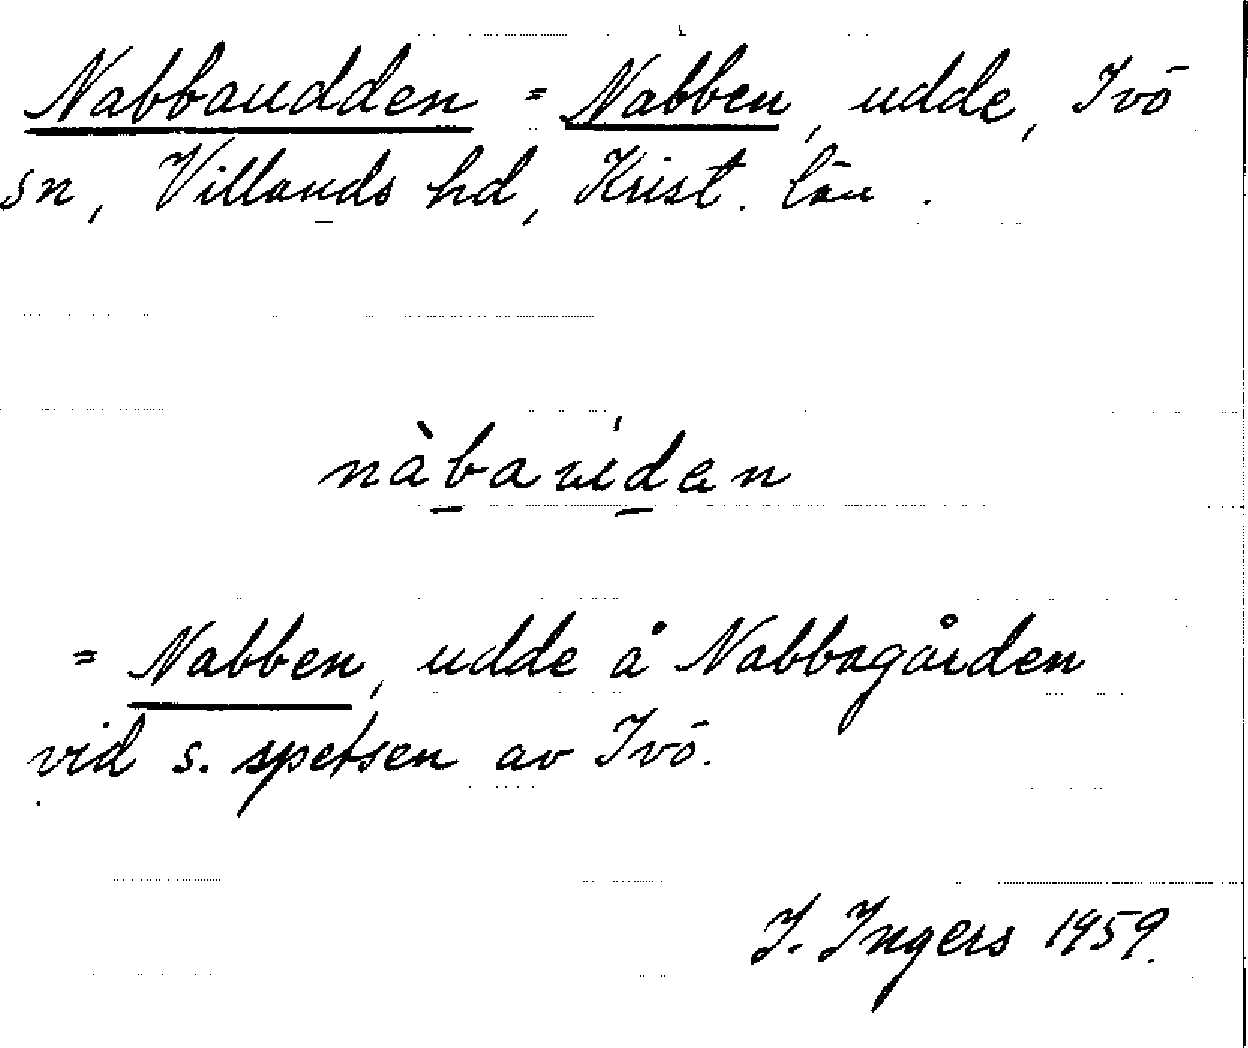 Nabbaudden = Nabben, udde, Ivö
sn, Villands hd, Krist. län.
nàbau̍dan
= Nabben, udde å Nabbagården
vid s. spetsen av Ivö.
I. Ingers 1959.